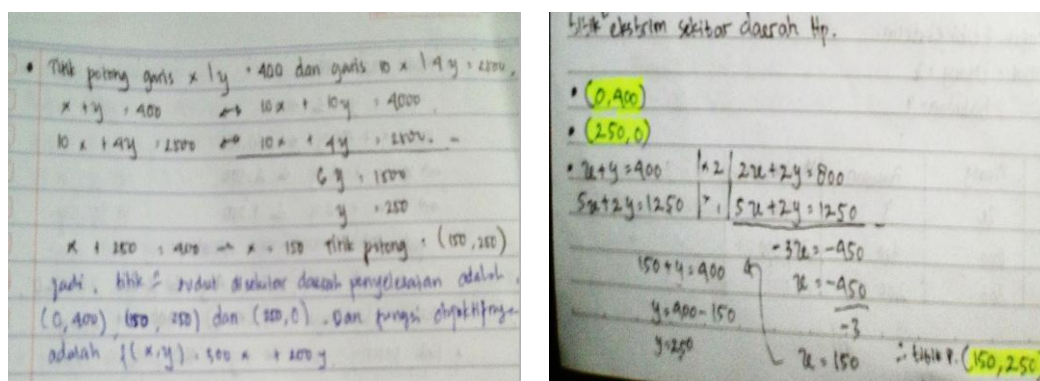 • Titik potong garis x + y = 400 dan garis 10x + 4y = 2500.
x + y = 400 ↔ 10x + 10y = 4000
10x + 4y = 2500 ↔ 10x + 4y = 2500. -
6y = 1500
y = 250
x + 250 = 400 → x = 150 Titik potong = (150, 250)
jadi, titik = sudut disekitar daerah penyelesaian adalah
(0, 400), (150, 250) dan (250, 0). Dan fungsi objektifnya
adalah f(x,y) = 300x + 200y
titik² ekstrim sekitar daerah Hp.
• (0,400)
• (250,0)
• x+y=400 |×2| 2x+2y=800
5x+2y=1250 | | 5x+2y=1250 -
-3x=-450
150+y=400 x=-450
y=400-150 -3
y=250 x=150 ∴ titik P. (150,250)